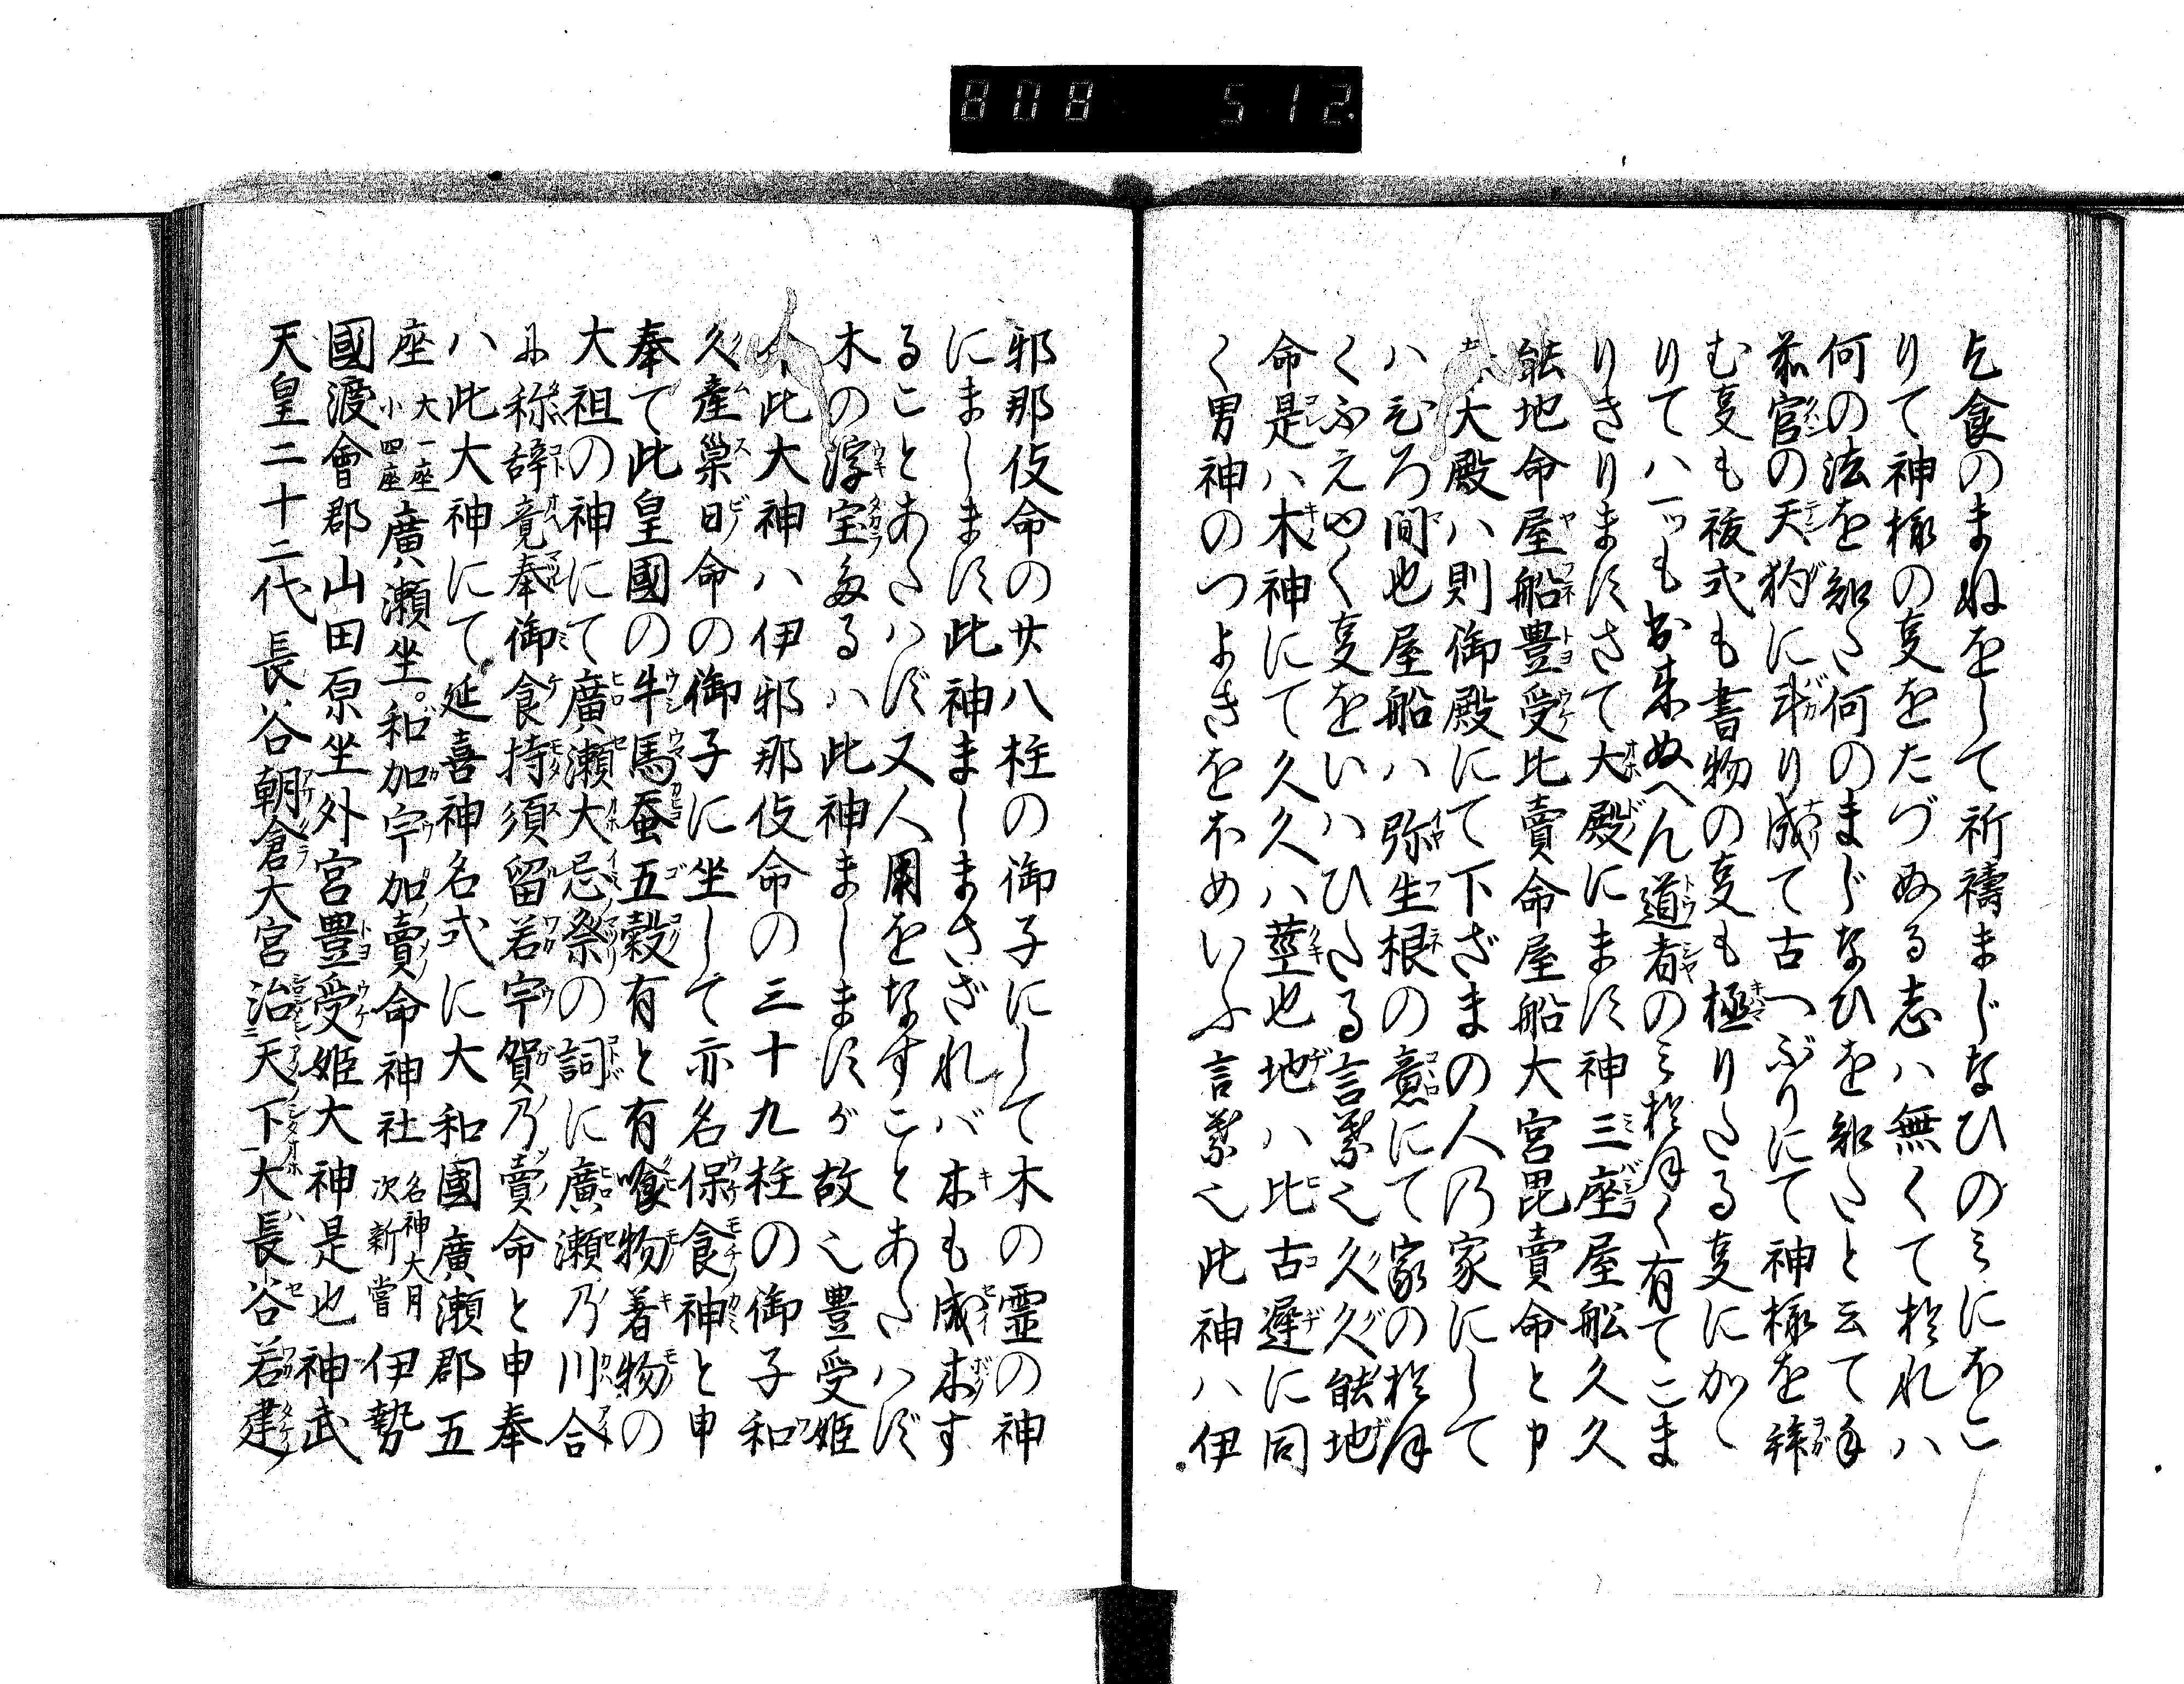 808 512.
乞食のまねをして祈禱まじなひのミにほこ
りて神様の事をたづぬる志ハ無くて於れハ
何の法を知た何のまじなひを知たと云て手
前官の天狗に斗り成て古つぶりにて神様を拝
む事も祓式も書物の事も極りたる事にかゝ
りてハ一ッも出来ぬへん道者のミ於ほく有てこま
りきりますさて大殿にます神三座屋船久久
能地命屋船豊受比賣命屋船大宮毘賣命と申
大殿ハ則御殿にて下ざまの人乃家にして
ハむろ間也屋船ハ弥生根の意にて家の於ほ
くふえゆく事をいハひたる言葉也久久能地
命是ハ木神にて久久ハ莖也地ハ比古遲に同
く男神のつよきをほめいふ言葉也此神ハ伊
邪那伎命の廿八柱の御子にして木の霊の神
にまします此神ましまさざれバ木も成木す
ることあたハず又人用をなすことあたハず
木の浮宝なるハ此神ましますが故也豊受姫
此大神ハ伊邪那伎命の三十九柱の御子和
久産巣日命の御子に坐して亦名保食神と申
奉て此皇國の牛馬蚕五穀有と有喰物着物の
大祖の神にて廣瀬大忌祭の詞に廣瀬乃川合
に称辞竟奉御食持須留若宇賀乃賣命と申奉
ハ此大神にて延喜神名式に大和國廣瀬郡五
座大一座小四座廣瀬坐。和加宇加賣命神社名神大月次新嘗伊勢
國渡會郡山田原坐外宮豊受姫大神是也神武
天皇二十二代長谷朝倉大宮治二天下一大長谷若建